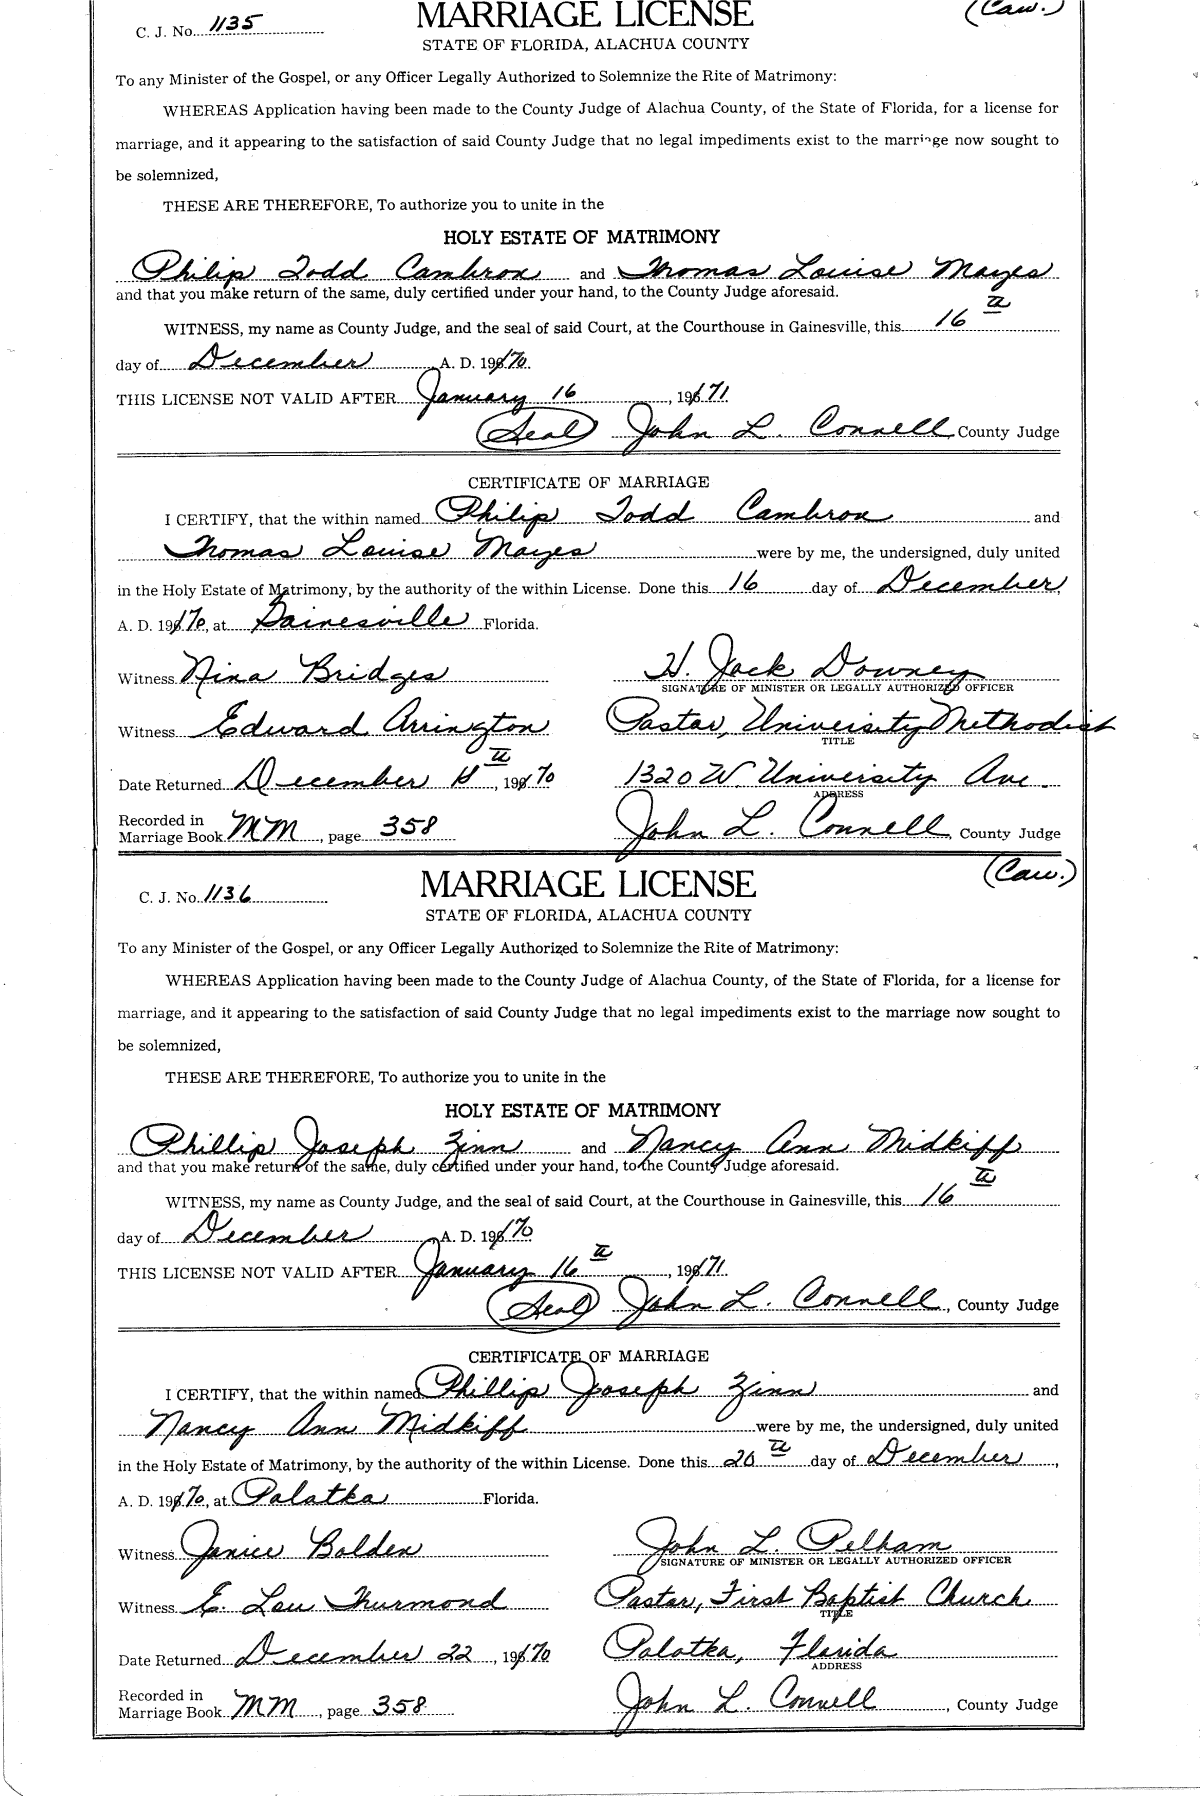 C. J. No. 1135
MARRIAGE LICENSE
(Cau.)
STATE OF FLORIDA, ALACHUA COUNTY
To any Minister of the Gospel, or any Officer Legally Authorized to Solemnize the Rite of Matrimony:
WHEREAS Application having been made to the County Judge of Alachua County, of the State of Florida, for a license for
marriage, and it appearing to the satisfaction of said County Judge that no legal impediments exist to the marriage now sought to
be solemnized,
THESE ARE THEREFORE, To authorize you to unite in the
HOLY ESTATE OF MATRIMONY
Philip Todd Cambron and Thomas Louise Mayes
and that you make return of the same, duly certified under your hand, to the County Judge aforesaid.
WITNESS, my name as County Judge, and the seal of said Court, at the Courthouse in Gainesville, this 16th
day of December A. D. 1970
THIS LICENSE NOT VALID AFTER January 16, 1971
(Seal) John L. Connell County Judge
CERTIFICATE OF MARRIAGE
I CERTIFY, that the within named Philip Todd Cambron and
Thomas Louise Mayes were by me, the undersigned, duly united
in the Holy Estate of Matrimony, by the authority of the within License. Done this 16 day of December,
A. D. 1970, at Gainesville Florida.
Witness Nina Bridges H. Jack Downey
SIGNATURE OF MINISTER OR LEGALLY AUTHORIZED OFFICER
Witness Edward Arrington Pastor, University Methodist
TITLE
Date Returned December th, 1970 1320 W. University Ave.
ADDRESS
Recorded in
Marriage Book MM, page 358 John L. Connell, County Judge
C. J. No. 1136
MARRIAGE LICENSE
(Cau.)
STATE OF FLORIDA, ALACHUA COUNTY
To any Minister of the Gospel, or any Officer Legally Authorized to Solemnize the Rite of Matrimony:
WHEREAS Application having been made to the County Judge of Alachua County, of the State of Florida, for a license for
marriage, and it appearing to the satisfaction of said County Judge that no legal impediments exist to the marriage now sought to
be solemnized,
THESE ARE THEREFORE, To authorize you to unite in the
HOLY ESTATE OF MATRIMONY
Phillip Joseph Zinn and Nancy Ann Midkiff
and that you make return of the same, duly certified under your hand, to the County Judge aforesaid.
WITNESS, my name as County Judge, and the seal of said Court, at the Courthouse in Gainesville, this 16th
day of December A. D. 1970
THIS LICENSE NOT VALID AFTER January 16th, 1971
(Seal) John L. Connell, County Judge
CERTIFICATE OF MARRIAGE
I CERTIFY, that the within named Phillip Joseph Zinn and
Nancy Ann Midkiff were by me, the undersigned, duly united
in the Holy Estate of Matrimony, by the authority of the within License. Done this 20th day of December,
A. D. 1970, at Palatka Florida.
Witness Janice Bolden John L. Pelham
SIGNATURE OF MINISTER OR LEGALLY AUTHORIZED OFFICER
Witness E. Lou Thurmond Pastor, First Baptist Church
TITLE
Date Returned December 22, 1970 Palatka, Florida
ADDRESS
Recorded in
Marriage Book MM, page 358 John L. Connell, County Judge